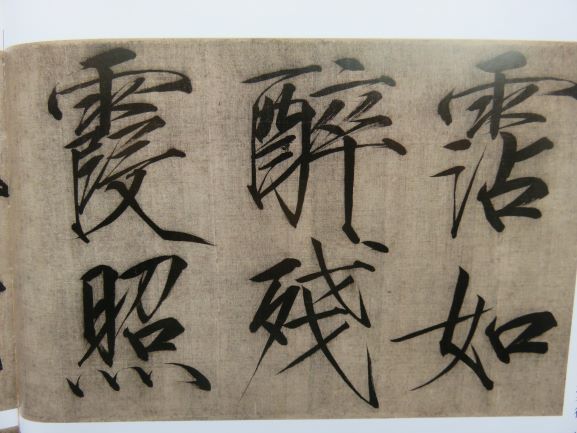 霑如
醉残
霞照